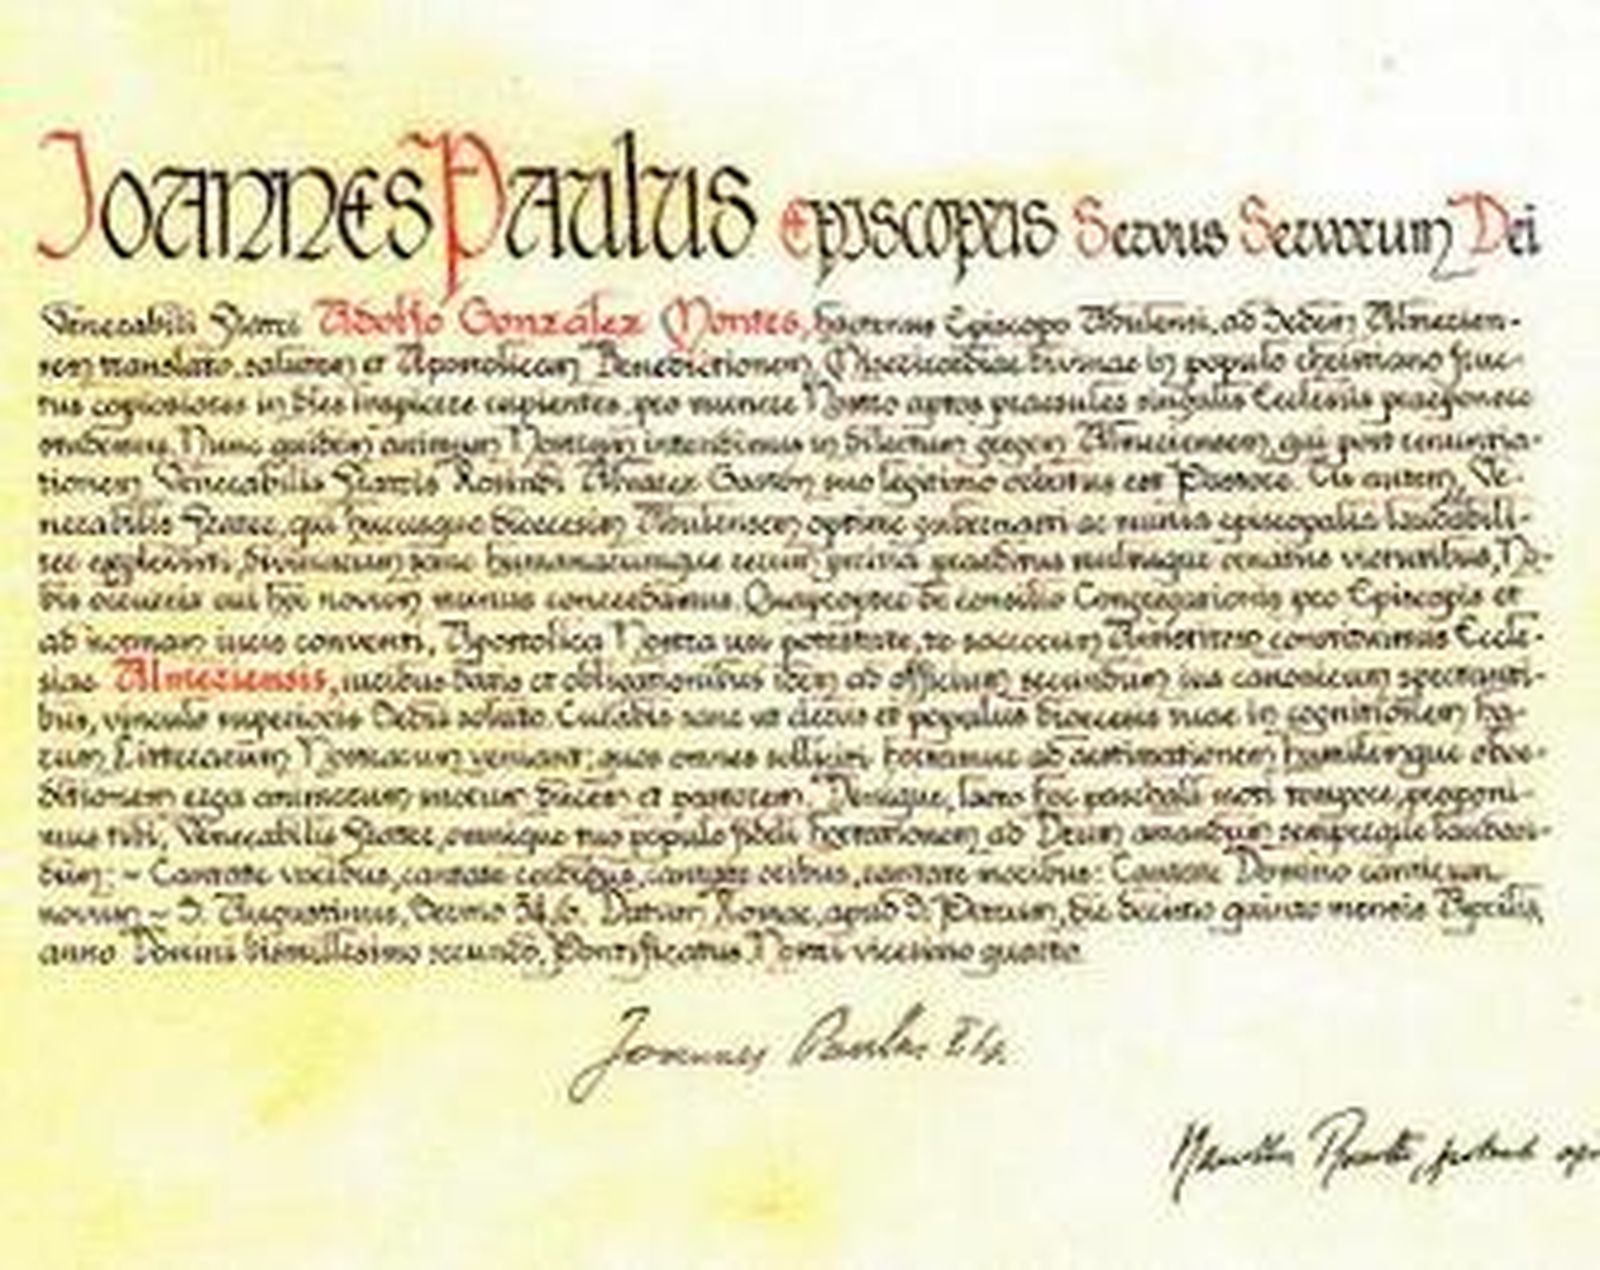 Joannes Paulus Episcopus Servus Servorum Dei
Venerabili Fratri Adolfo González Montes, hactenus Episcopo Abulensi, ad Sedem Almerien-
sem translato, salutem et Apostolicam Benedictionem. Misericordiae divinae in populo christiano fruc-
tus copiosiores in dies inspicere cupientes, pro munere Nostro aptos praesules singulis Ecclesiis praeponere
studemus. Nunc quidem animum Nostrum intendimus in dilectum gregem Almeriensem, qui post renuntia-
tionem Venerabilis Fratris Rosendi Álvarez Gastón suo legitimo orbatus est Pastore. Tu autem, Ve-
nerabilis Frater, qui hucusque dioecesim Abulensem optime gubernasti ac munia episcopalia laudabili-
ter explevisti, divinarum sane humanarumque rerum peritia praeditus multisque ornatus virtutibus, No-
bis occurris cui hoc novum munus concredamus. Quapropter de consilio Congregationis pro Episcopis et
ad normam iuris conventi, Apostolica Nostra usi potestate, te sacrorum Antistitem constituimus Eccle-
siae Almeriensis, iuribus datis et obligationibus idem ad officium secundum ius canonicum spectanti-
bus, vinculo superioris Sedis soluto. Curabis sane ut clerus et populus dioecesis tuae in cognitionem ha-
rum Litterarum Nostrarum veniant; quos omnes solliciti hortamur ad aestimationem humilemque oboe-
ditionem erga animorum suorum ducem et pastorem. Denique, laeto hoc paschali moti tempore, proponi-
mus tibi, Venerabilis Frater, omnique tuo populo fideli hortationem ad Deum amandum semperque laudan-
dum: ~ Cantate vocibus, cantate cordibus, cantate oribus, cantate moribus: Cantate Domino canticum
novum ~ S. Augustinus, Sermo 34,6. Datum Romae, apud S. Petrum, die decimo quinto mensis Aprilis,
anno Domini bismillesimo secundo, Pontificatus Nostri vicesimo quarto.
Joannes Paulus II